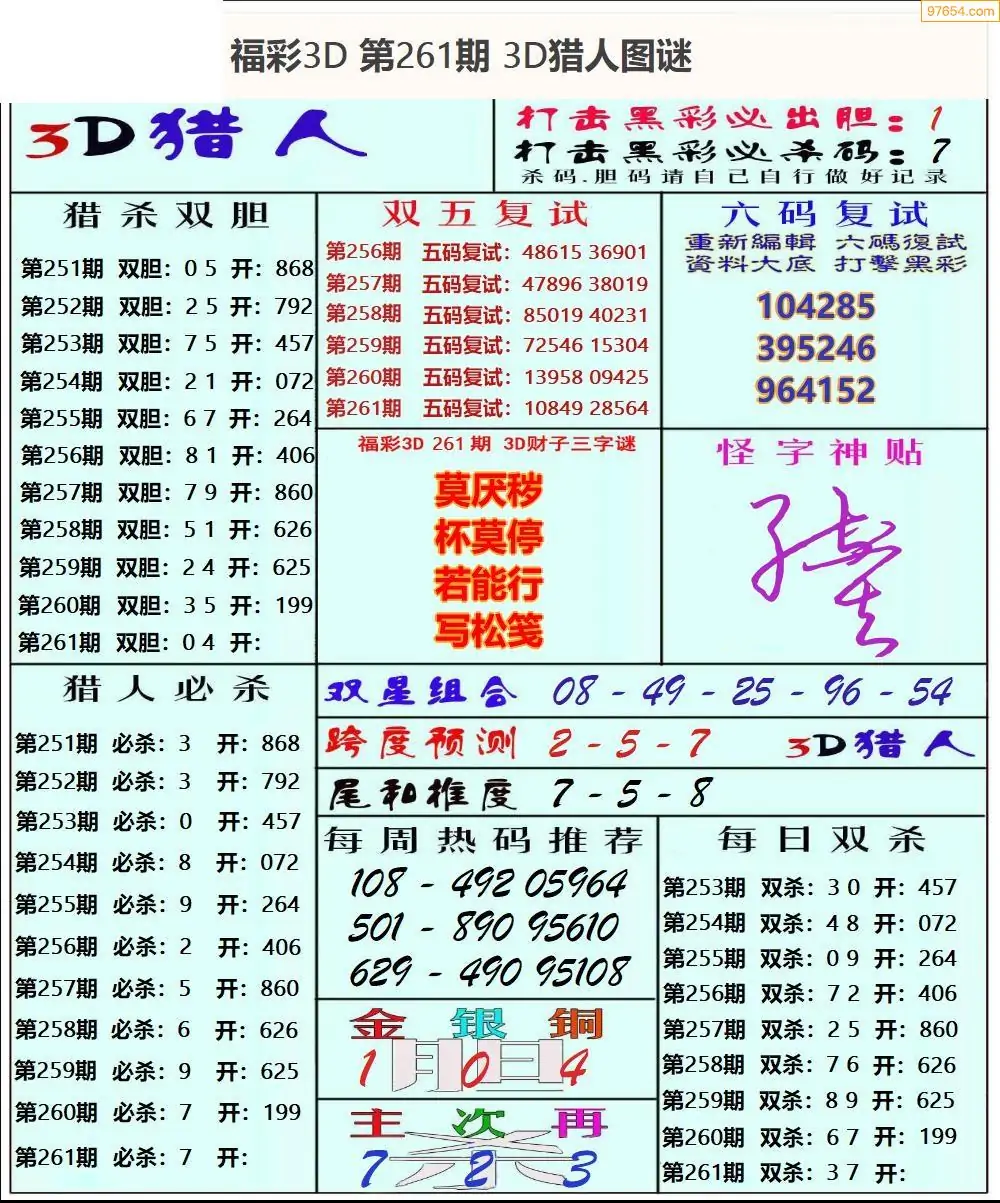 97654.com
福彩3D 第261期 3D猎人图谜
3D猎人
打击黑彩必出胆：1
打击黑彩必杀码：7
杀码.胆码请自己自行做好记录
猎杀双胆
第251期 双胆：0 5 开：868
第252期 双胆：2 5 开：792
第253期 双胆：7 5 开：457
第254期 双胆：2 1 开：072
第255期 双胆：6 7 开：264
第256期 双胆：8 1 开：406
第257期 双胆：7 9 开：860
第258期 双胆：5 1 开：626
第259期 双胆：2 4 开：625
第260期 双胆：3 5 开：199
第261期 双胆：0 4 开：
双五复试
第256期 五码复试：48615 36901
第257期 五码复试：47896 38019
第258期 五码复试：85019 40231
第259期 五码复试：72546 15304
第260期 五码复试：13958 09425
第261期 五码复试：10849 28564
六码复试
重新編輯 六碼復試
資料大底 打擊黑彩
104285
395246
964152
福彩3D 261期 3D财子三字谜
莫厌秽
杯莫停
若能行
写松笺
怪字神贴
猎人必杀
第251期 必杀：3 开：868
第252期 必杀：3 开：792
第253期 必杀：0 开：457
第254期 必杀：8 开：072
第255期 必杀：9 开：264
第256期 必杀：2 开：406
第257期 必杀：5 开：860
第258期 必杀：6 开：626
第259期 必杀：9 开：625
第260期 必杀：7 开：199
第261期 必杀：7 开：
双星组合 08 - 49 - 25 - 96 - 54
跨度预测 2 - 5 - 7 3D猎人
尾和推度 7 - 5 - 8
每周热码推荐
108 - 492 05964
501 - 890 95610
629 - 490 95108
金银铜
胆
1 0 4
主次再
杀
7 2 3
每日双杀
第253期 双杀：3 0 开：457
第254期 双杀：4 8 开：072
第255期 双杀：0 9 开：264
第256期 双杀：7 2 开：406
第257期 双杀：2 5 开：860
第258期 双杀：7 6 开：626
第259期 双杀：8 9 开：625
第260期 双杀：6 7 开：199
第261期 双杀：3 7 开：